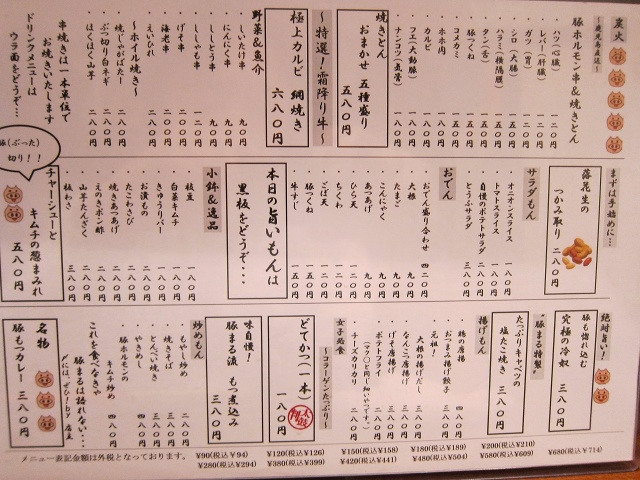 炭火
豚ホルモン串&焼きとん
ハツ(心臓) 一二〇円
レバー(肝臓) 一二〇円
ガツ(胃)
シロ(大腸)
タン(舌)
ハラミ(横隔膜)
豚つくね
コメカミ
ホホ肉
カルビ
フエ(大動脈)
ナンコツ(気管) 一八〇円
焼きとん
おまかせ 五種盛り
五八〇円
~特選!霜降り牛~
極上カルビ 網焼き
六八〇円
野菜&魚介
しいたけ串 九〇円
にんにく串 九〇円
ししとう串 九〇円
ししゃも串 一二〇円
げそ串 二八〇円
海老串 二八〇円
えいひれ 二八〇円
~ホイル焼き~
焼じゃがばたー 二八〇円
ぶつ切り白ネギ 二八〇円
ほくほく山芋 二八〇円
串焼きは一本単位で
お焼きいたします
ドリンクメニューは
ウラ面をどうぞ…
まずは手始めに…
落花生の
つかみ取り 二八〇円
サラダもん
オニオンスライス 一八〇円
トマトスライス 二八〇円
自慢のポテトサラダ 二八〇円
とうふサラダ 三八〇円
おでん
おでん盛り合わせ 四二〇円
大根 九〇円
たまご 九〇円
こんにゃく 九〇円
あつあげ 九〇円
ちくわ 九〇円
ひら天 九〇円
ごぼ天 一二〇円
豚つくね 一五〇円
牛すじ 一五〇円
本日の旨いもんは
黒板をどうぞ…
小鉢&逸品
枝豆 一八〇円
白菜キムチ 一八〇円
きゅうりバー 一八〇円
お漬もの 二八〇円
たこわさび 二八〇円
焼きあつあげ 二八〇円
えのきポン酢 二八〇円
山芋たんざく 二八〇円
板わさ 三八〇円
豚(ぶった)
切り!!
チャーシューと
キムチの葱まみれ
五八〇円
絶対旨い!
豚も惚れ込む
究極の冷奴 三八〇円
"豚まる特製"
たっぷりキャベツの
塩たこ焼き 三八〇円
揚げもん
鶏の唐揚 四八〇円
おつまみ揚げ餃子
元祖!
大根の揚げだし 三八〇円
なんこつ唐揚げ 三八〇円
げそ唐揚げ 三八〇円
ポテトフライ 三八〇円
チーズカリカリ 二八〇円
女子必食
~コラーゲンたっぷり~
どてかつ(一本)
一八〇円
味自慢!
豚まる流 もつ煮込み
三八〇円
炒めもん
もやし炒め 二八〇円
焼きそば 三八〇円
とんぺい焼き 三八〇円
やきめし 三八〇円
豚ホルモンの
キムチ炒め 四八〇円
これを食べなきゃ
豚まるは語れない…
〆には、ぜひ!by 店主
名物
豚もつカレー 三八〇円
メニュー表記金額は外税となっております。
¥90(税込¥94) ¥120(税込¥126) ¥150(税込¥158) ¥180(税込¥189) ¥200(税込¥210)
¥280(税込¥294) ¥380(税込¥399) ¥420(税込¥441) ¥480(税込¥504) ¥580(税込¥609) ¥680(税込¥714)